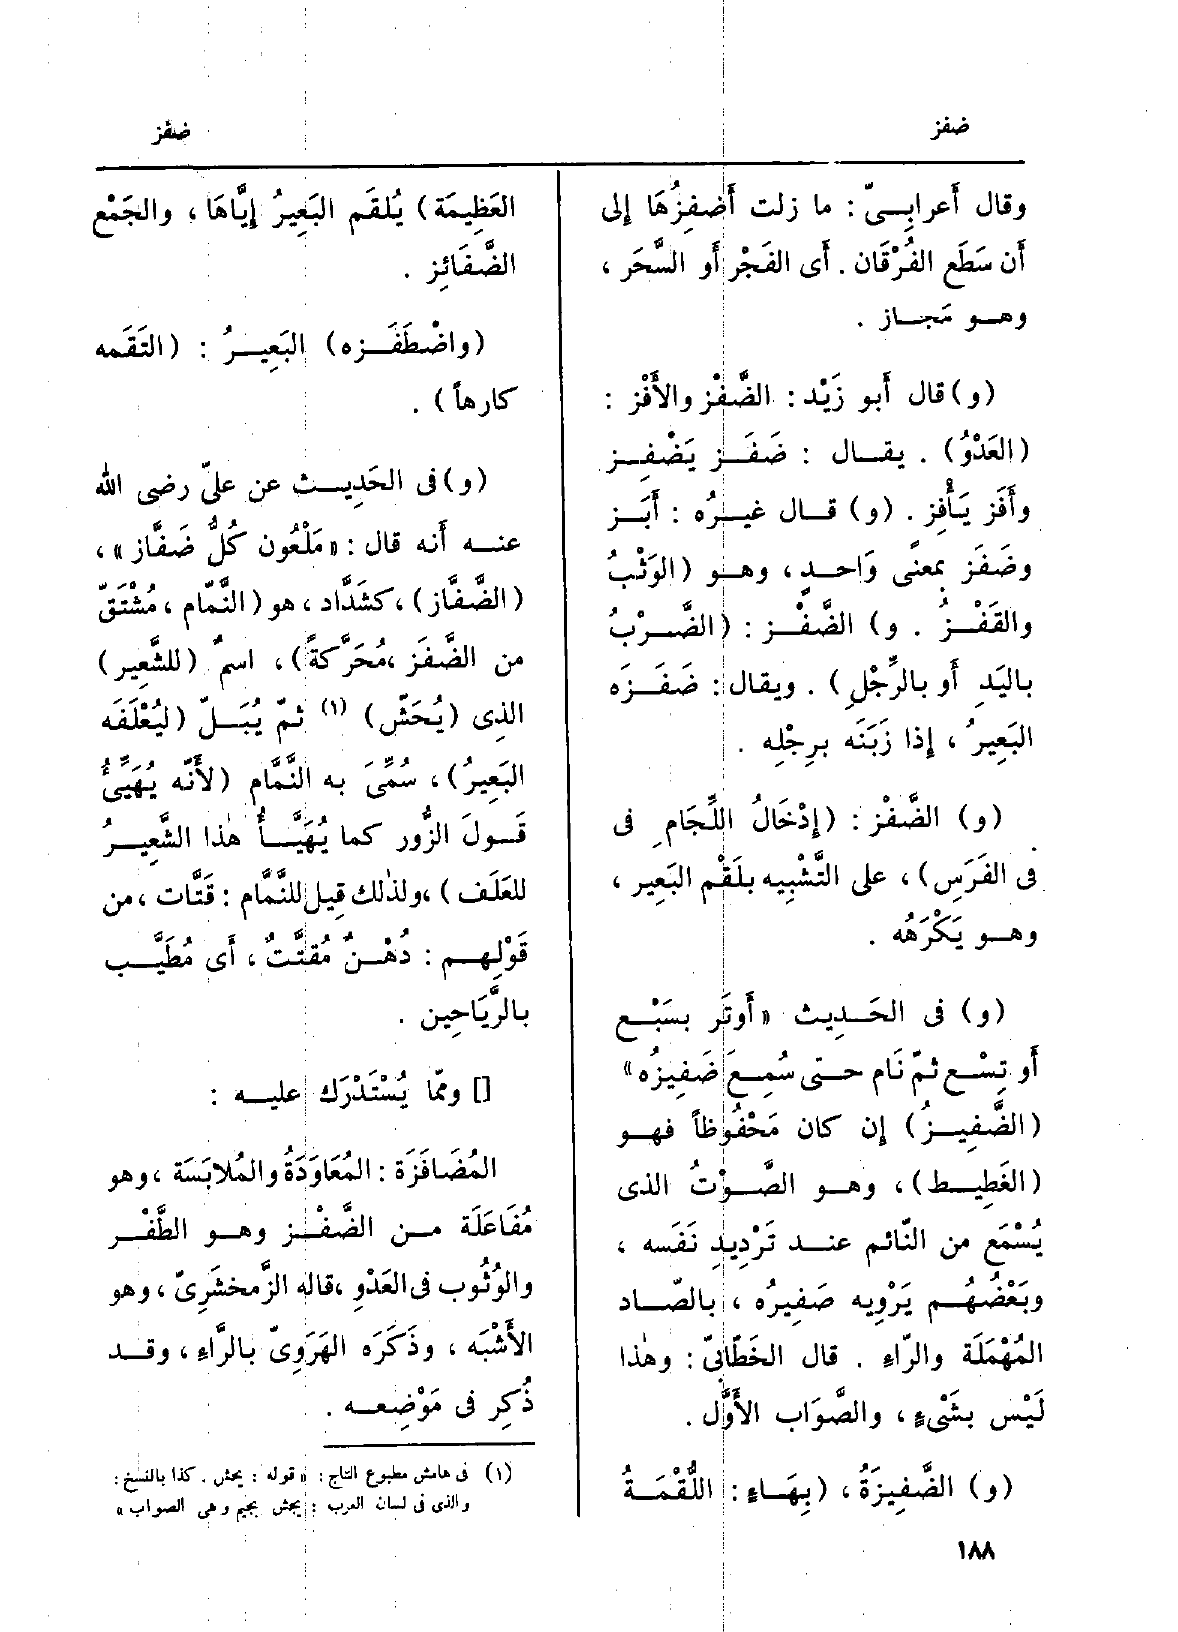 ضفز
ضفز
وقال أَعرابِىّ : ما زلت أَضفِزُهَا إِلى
أَن سَطَع الفُرْقَان . أَى الفَجْر أَو السَّحَر ،
وهو مَجاز .
(و) قال أَبو زَيْد : الضَّفْز والأَفْز :
(العَدْوُ) . يقال : ضَفَز يَضْفِز
وأَفَز يَأْفِز . (و) قال غيرُه : أَبَز
وضَفَز بمعنًى وَاحدٍ ، وهو (الوَثْبُ
والقَفْزُ . و) الضَّفْز : (الضَّرْبُ
باليَدِ أَو بالرِّجْلِ) . ويقال : ضَفَزَه
البَعِيرُ ، إِذا زَبَنَه برِجْلِه .
(و) الضَّفْز : (إِدْخَالُ اللِّجَامِ فى
فى الفَرَسِ) ، على التَّشْبِيه بلَقْم البَعير ،
وهو يَكْرَهُه .
(و) فى الحَدِيث « أَوتَر بسَبْع
أَو تِسْع ثمّ نَام حتى سُمِعَ ضَفِيزُه »
(الضَّفِيزُ) إِن كان مَحْفُوظاً فهو
(الغَطِيط) ، وهو الصَّوْتُ الذى
يُسْمَع من النّائم عند تَرْدِيدِ نَفَسه ،
وبَعْضُهُم يَرْوِيه صَفِيرُه ، بالصّاد
المُهْمَلَة والرّاءِ . قال الخَطّابىّ : وهٰذا
لَيْس بشَىْءٍ ، والصَّوَاب الأَوَّل .
(و) الضَّفِيزَةُ ، (بِهَاءٍ : اللُّقْمَةُ
العَظِيمَة) يُلقَم البَعِيرُ إِيَّاهَا ، والجَمْع
الضَّفَائِز .
(واضْطَفَزه) البَعِيرُ : (التَقَمه
كارهاً) .
(و) فى الحَدِيث عن علىّ رضى الله
عنه أَنه قال : « مَلْعُون كُلُّ ضَفَّاز » ،
(الضَّفَّاز) ، كشَدَّاد ، هو (النَّمّام ، مُشْتَقّ
من الضَّفَز ، مُحَرَّكةً) ، اسمٌ (للشَّعِير)
الذِى (يُحَشّ) (١) ثمّ يُبَلّ (ليُعْلَفَه
البَعِيرُ) ، سُمِّىَ به النَّمَّام (لأَنّه يُهَيِّئُ
قَولَ الزُّور كما يُهَيَّأُ هٰذا الشَّعِيرُ
للعَلَف) ، ولذٰلك قيل للنَّمَّام : قَتَّات ، من
قَوْلِهم : دُهْنٌ مُقتَّتٌ ، أَى مُطَيَّب
بالرَّيَاحِين .
[] وممّا يُسْتَدْرَك عليه :
المُضَافَزَة : المُعَاوَدَةُ والمُلابَسَة ، وهو
مُفَاعَلَة من الضَّفْز وهو الطَّفْر
والوُثُوب فى العَدْوِ ، قاله الزَّمخشَرِىّ ، وهو
الأَشْبَه ، وذَكَرَه الهَرَوِىّ بالرّاءِ ، وقد
ذُكِر فى مَوْضِعه .
(١) فى هامش مطبوع التاج : « قوله : يحش . كذا بالنسخ :
والذى فى لسان العرب : يجش بجيم وهى الصواب »
١٨٨